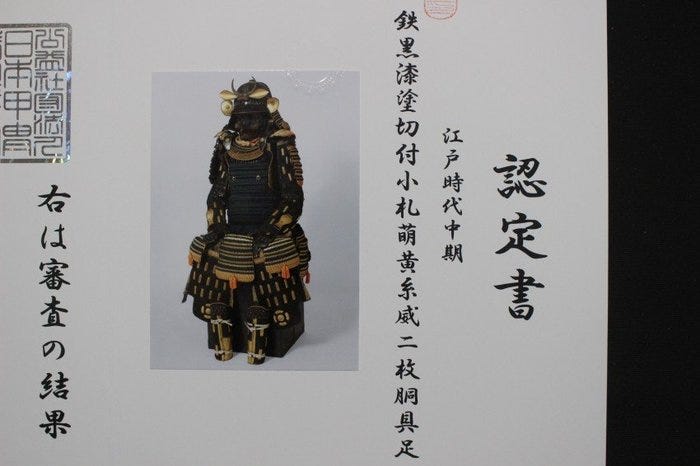 認定書
江戸時代中期
鉄黒漆塗切付小札萌黄糸威二枚胴具足
右は審査の結果
公益社団法人
日本甲冑